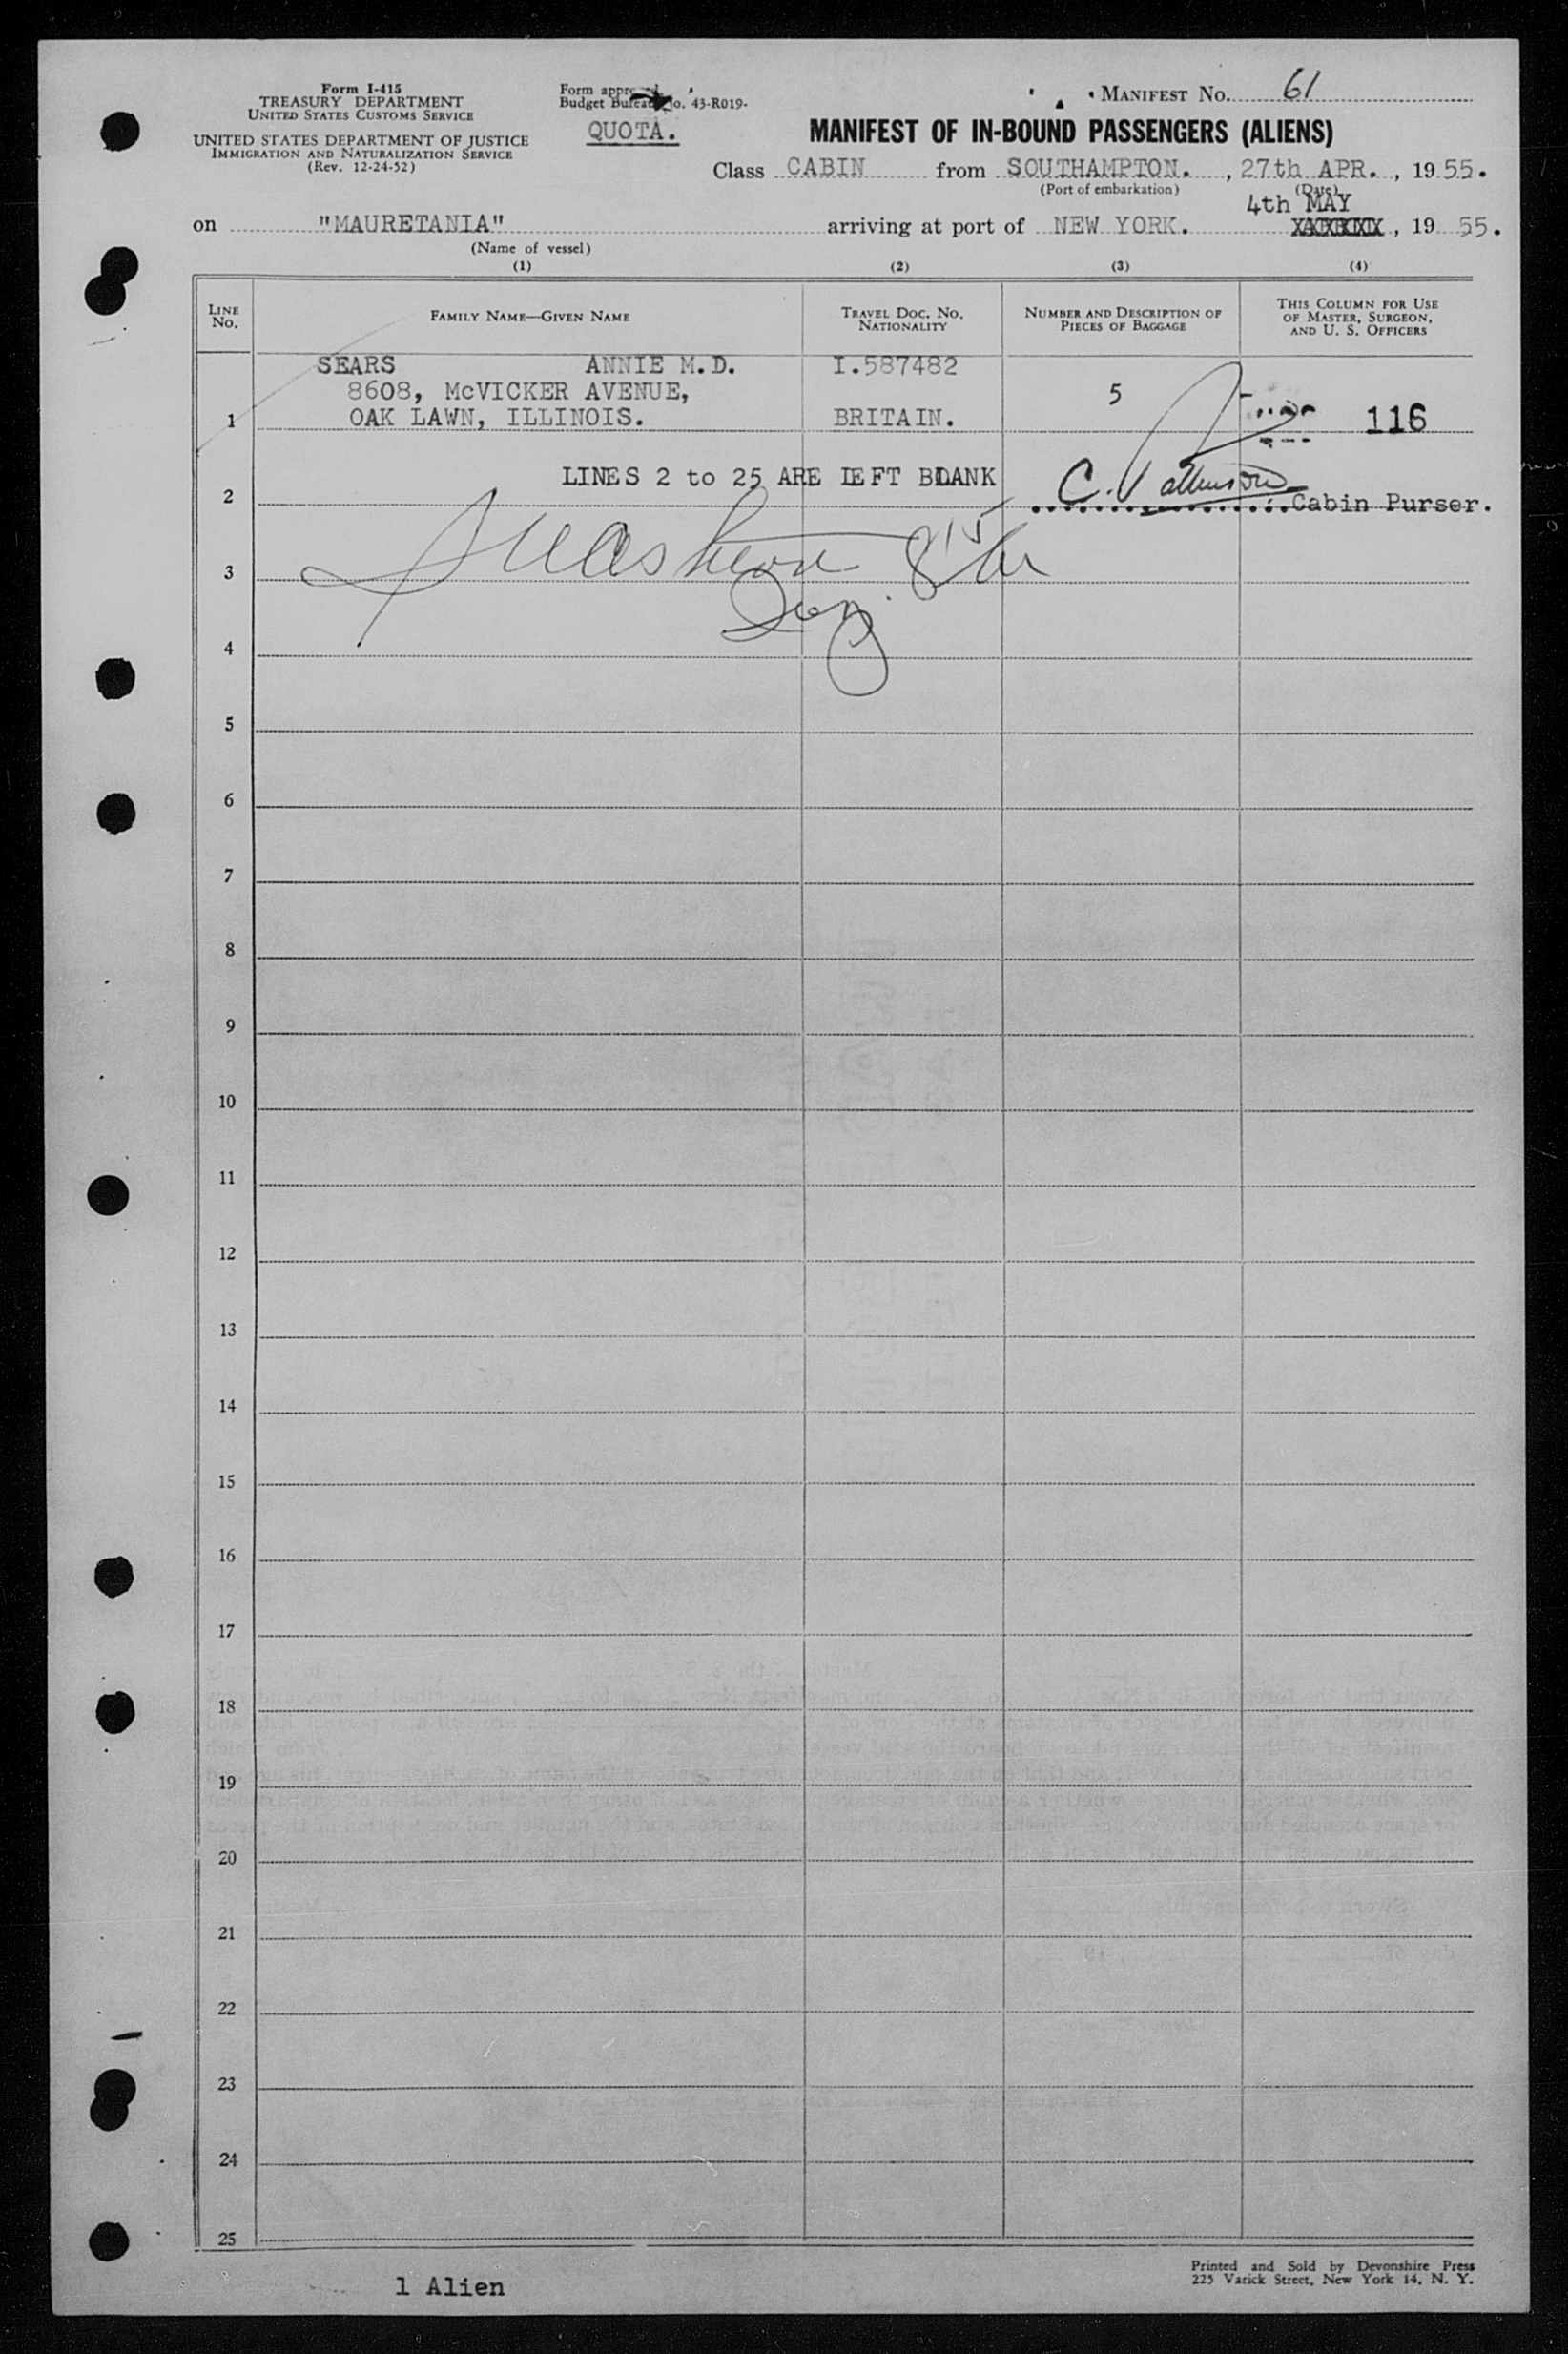 Form I-415
TREASURY DEPARTMENT
UNITED STATES CUSTOMS SERVICE
UNITED STATES DEPARTMENT OF JUSTICE
IMMIGRATION AND NATURALIZATION SERVICE
(Rev. 12-24-52)
Form approved
Budget Bureau No. 43-R019-
QUOTA.
MANIFEST NO. 61
MANIFEST OF IN-BOUND PASSENGERS (ALIENS)
Class CABIN from SOUTHAMPTON. , 27th APR. , 19 55.
(Port of embarkation) (Date)
4th MAY
on "MAURETANIA" arriving at port of NEW YORK. , 19 55.
(Name of vessel)
(1) (2) (3) (4)
LINE NO. FAMILY NAME—GIVEN NAME TRAVEL DOC. NO. NATIONALITY NUMBER AND DESCRIPTION OF PIECES OF BAGGAGE THIS COLUMN FOR USE OF MASTER, SURGEON, AND U. S. OFFICERS
SEARS ANNIE M.D. I.587482
8608, McVICKER AVENUE, 5
1 OAK LAWN, ILLINOIS. BRITAIN. 116
LINES 2 to 25 ARE LEFT BLANK
2 Cabin Purser.
3
4
5
6
7
8
9
10
11
12
13
14
15
16
17
18
19
20
21
22
23
24
25
1 Alien
Printed and Sold by Devonshire Press
225 Varick Street, New York 14, N. Y.